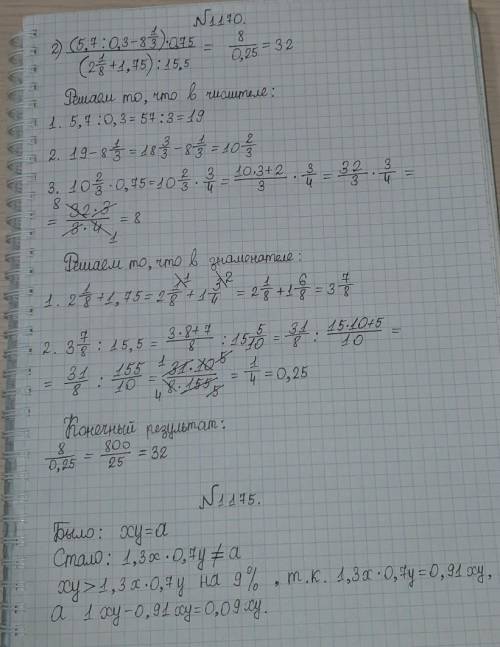 №1170.
2) (5,7:0,3-8 1/3)·0,75 / (2 1/8+1,75):15,5 = 8/0,25 = 32
Решаем то, что в числителе:
1. 5,7:0,3=57:3=19
2. 19-8 1/3=18 3/3-8 1/3=10 2/3
3. 10 2/3·0,75=10 2/3·3/4=10·3+2/3·3/4=32/3·3/4=
8 = 32·3/3·4 1 = 8
Решаем то, что в знаменателе:
1. 2 1/8+1,75=2 1/8 \1+1 3/4 \2=2 1/8+1 6/8=3 7/8
2. 3 7/8:15,5=3·8+7/8:15 5/10=31/8:15·10+5/10=
= 31/8:155/10= 1 31·10 5/4 8·155 5=1/4=0,25
Конечный результат:
8/0,25=800/25=32
№1175.
Было: xy=a
Стало: 1,3x·0,7y≠a
xy>1,3x·0,7y на 9%, т.к. 1,3x·0,7y=0,91xy,
а 1xy-0,91xy=0,09xy.